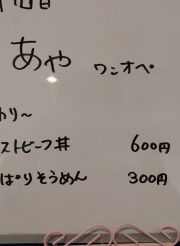 あや ワンオペ
カリ〜
ストビーフ丼 600円
ぱりそうめん 300円